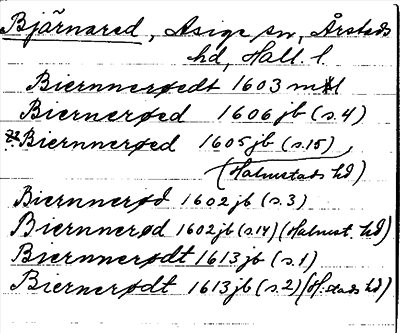 Bjärnared, Asige sn, Årstads
hd, Hall. l.
Biernnerøedt 1603 mtl
Biernerøed 1606 jb (s.4)
Biernnerøed 1605 jb (s.15),
(Halmstads hd)
Biernnerød 1602 jb (s.3)
Biernnerød 1602 jb (s.14) (Halmst. hd)
Biernnerødt 1613 jb (s.1)
Biernerødt 1613 jb (s.2) (H.stads hd)